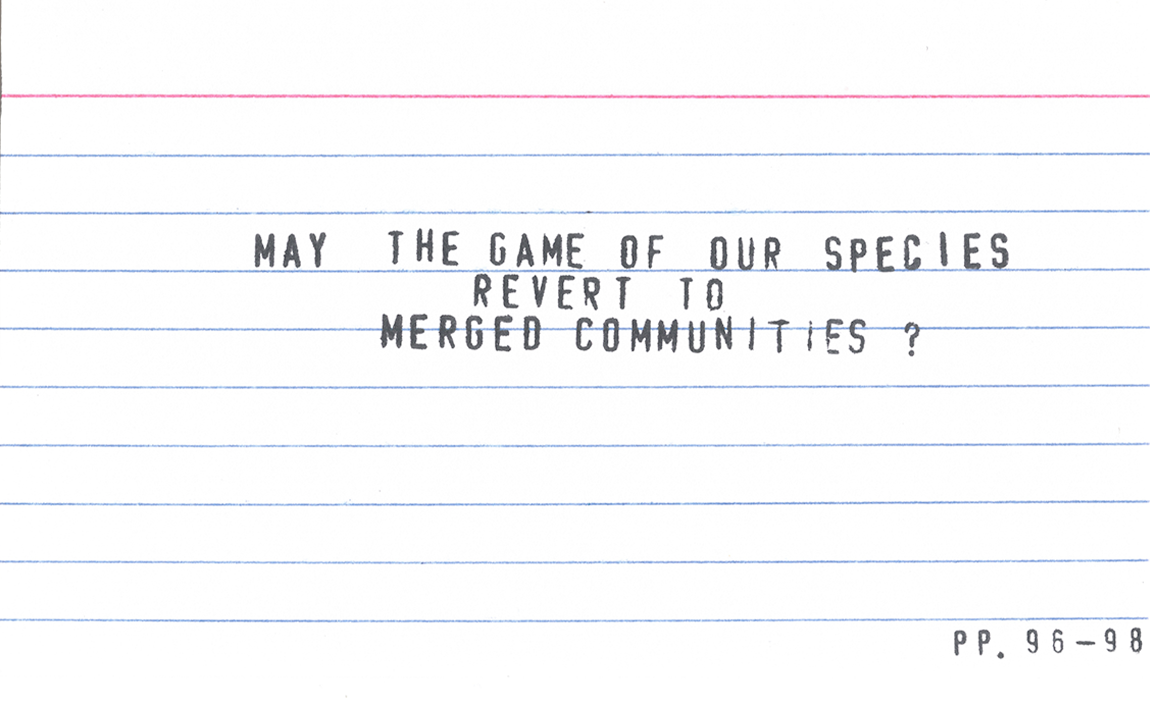 MAY THE GAME OF OUR SPECIES
REVERT TO
MERGED COMMUNITIES ?
PP. 96-98